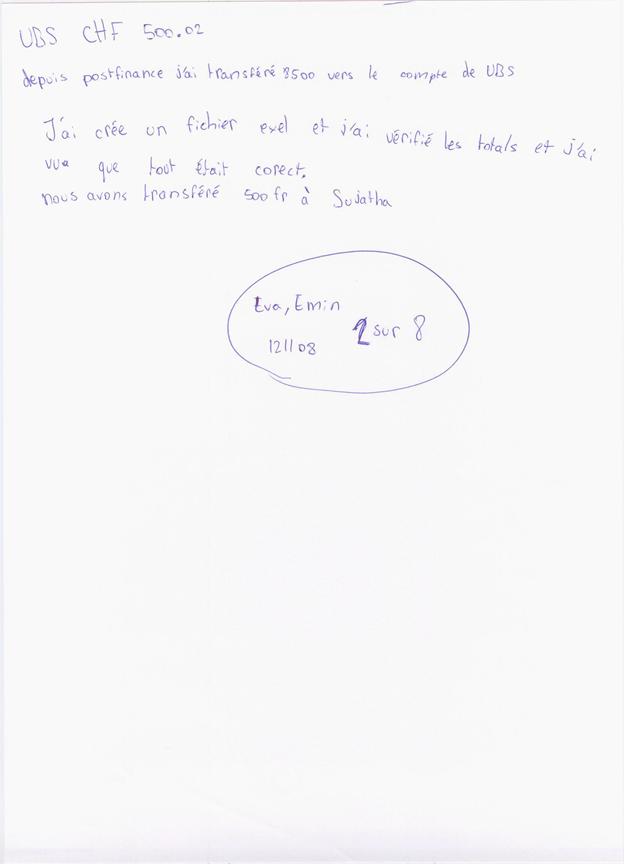 UBS CHF 500.02
depuis postfinance j'ai transféré 8500 vers le compte de UBS
J'ai crée un fichier exel et j'ai vérifié les totals et j'ai
vue que tout était corect.
nous avons transféré 500 fr à Sujatha
Eva, Emin
sur 8
121108